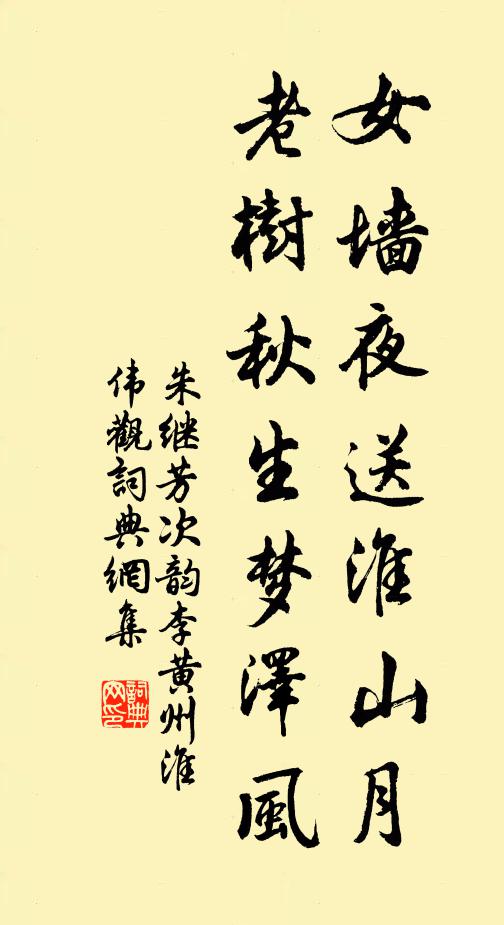 女墙夜送淮山月
老樹秋生梦澤風
朱继芳次韵李黄州淮
伟觀詞典網集
詞典网印